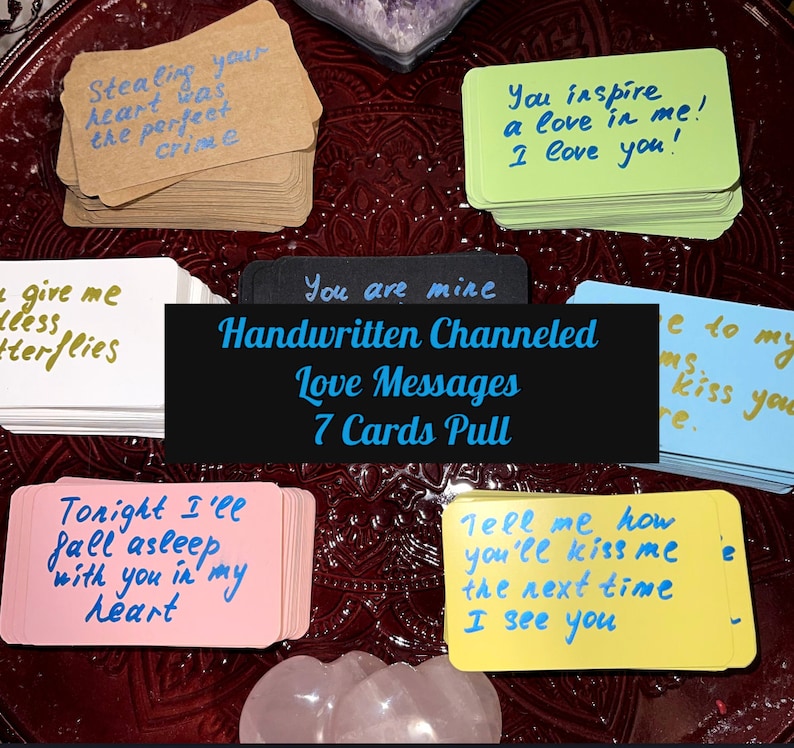 Stealing your
heart was
the perfect
crime
You inspire
a love in me!
I love you!
give me
terflies
You are mine
Handwritten Channeled
Love Messages
7 Cards Pull
to my
kiss you
Tonight I'll
fall asleep
with you in my
heart
Tell me how
you'll kiss me
the next time
I see you